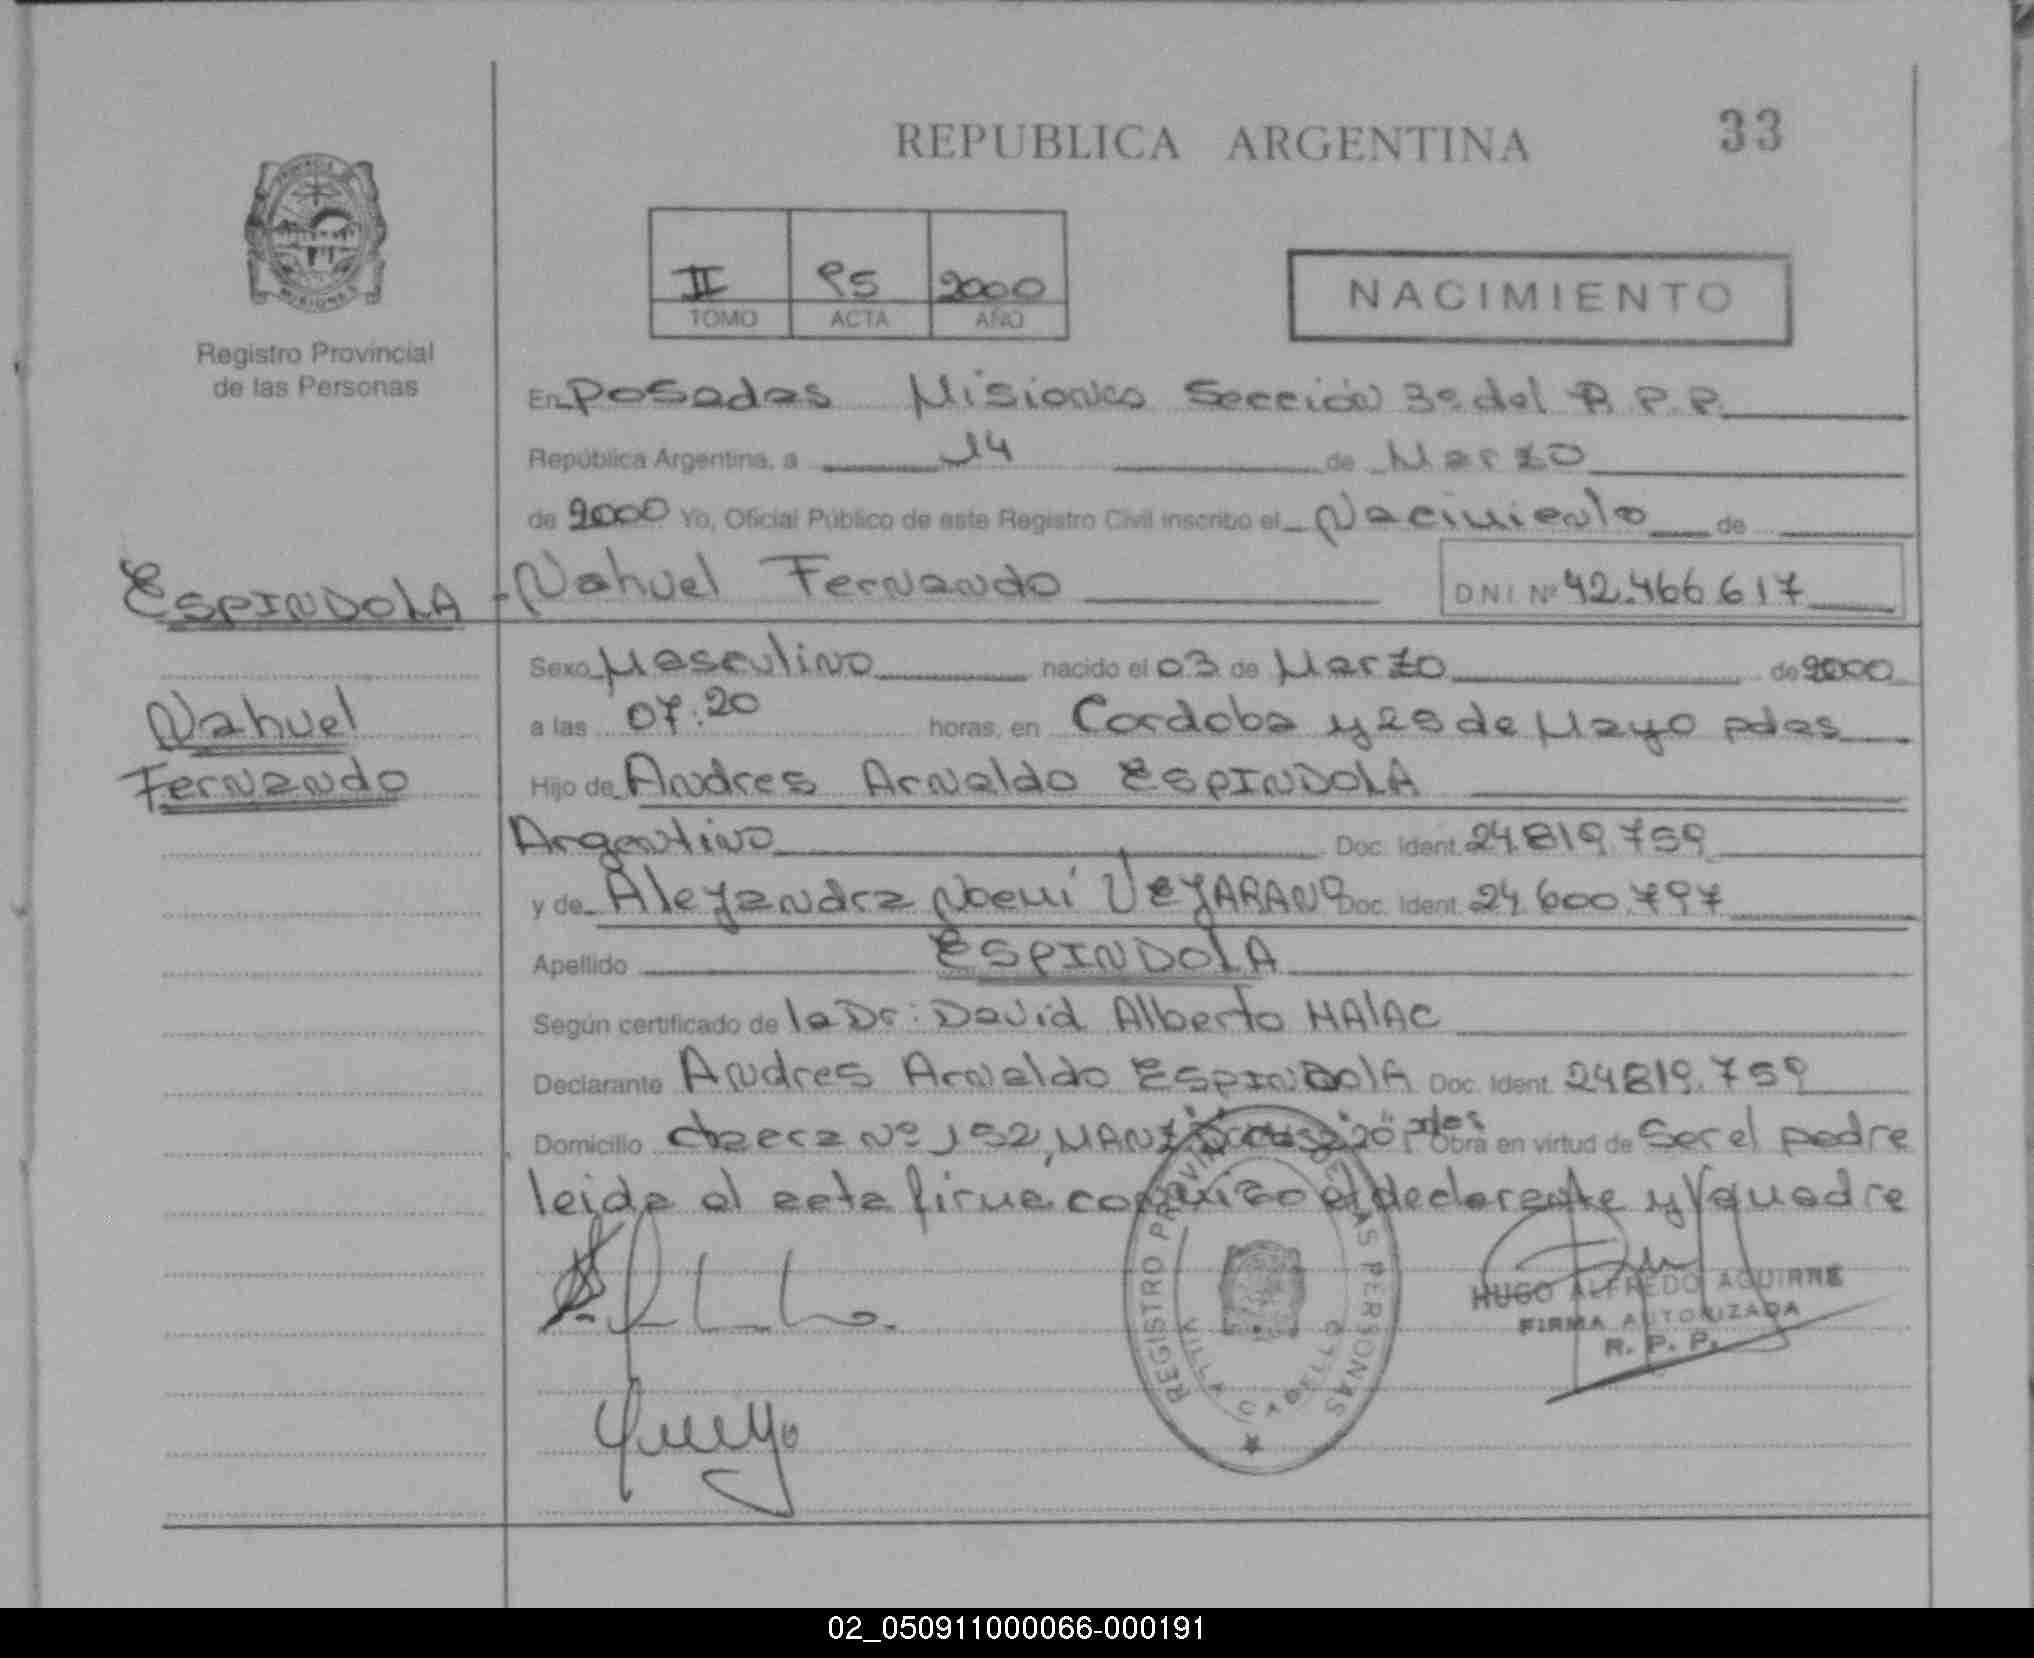 REPUBLICA ARGENTINA
33
II 95 2000
TOMO ACTA AÑO
NACIMIENTO
Registro Provincial
de las Personas
En Posadas Misiones Sección 3º del R.P.P.
República Argentina, a 14 de Marzo
de 2000 Yo, Oficial Público de este Registro Civil inscribo el Nacimiento de
ESPINDOLA - Nahuel Fernando DNI Nº 42.466.617
Sexo Masculino nacido el 03 de Marzo de 2000
Nahuel
a las 07:20 horas, en Cordoba y 25 de Mayo pdas
Fernando
Hijo de Andres Arnaldo ESPINDOLA
Argentino Doc. Ident. 24.819.759
y de Alejandra Noemi VEJARANO Doc. Ident. 24.600.797
Apellido ESPINDOLA
Según certificado de la Dr: David Alberto HALAC
Declarante Andres Arnaldo ESPINDOLA Doc. Ident. 24819.759
Domicilio chacra Nº 152, MANZ pdas Obra en virtud de Ser el padre
leida el acta firma conmigo el declarante y madre
REGISTRO PROVINCIAL DE LAS PERSONAS
VILLA CABELLO
HUGO ALFREDO AGUIRRE
FIRMA AUTORIZADA
R. P. P.
02_050911000066-000191